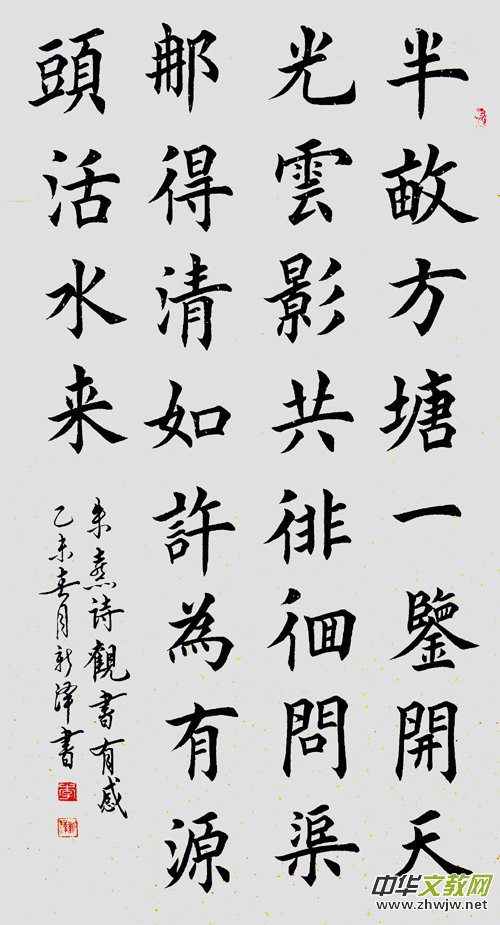 半畝方塘一鑒開天
光雲影共徘徊問渠
那得清如許為有源
頭活水来
朱熹诗觀書有感
乙未春月新泽書
中华文教网
www.zhwjw.net